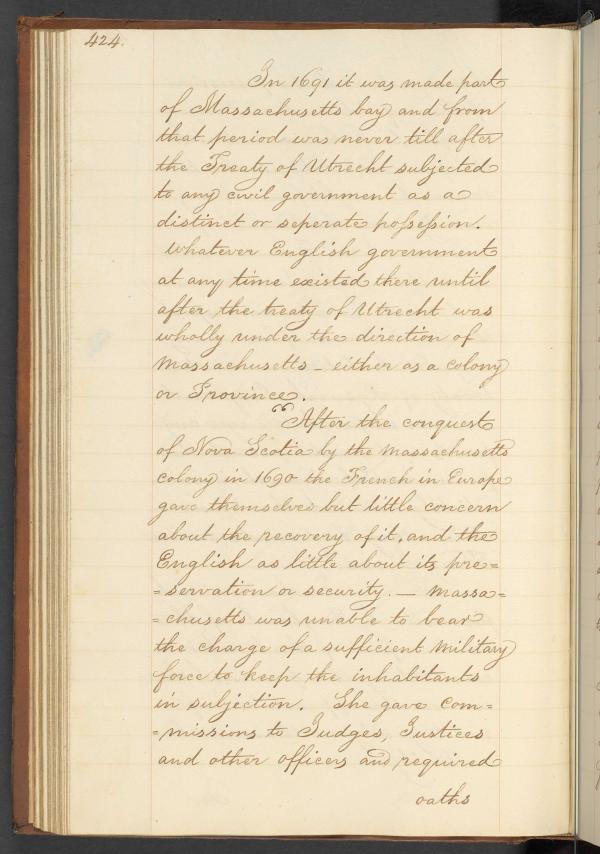 424.
In 1691 it was made part
of Massachusetts bay and from
that period was never till after
the Treaty of Utrecht subjected
to any civil government as a
distinct or seperate possession.
Whatever English government
at any time existed there until
after the treaty of Utrecht was
wholly under the direction of
Massachusetts – either as a colony
or Province.
After the conquest
of Nova Scotia by the Massachusetts
colony in 1690 the French in Europe
gave themselves but little concern
about the recovery of it, and the
English as little about its pre=
=servation or security. — Massa=
=chusetts was unable to bear
the charge of a sufficient Military
force to keep the inhabitants
in subjection. She gave com=
=missions to Judges, Justices
and other officers and required
oaths